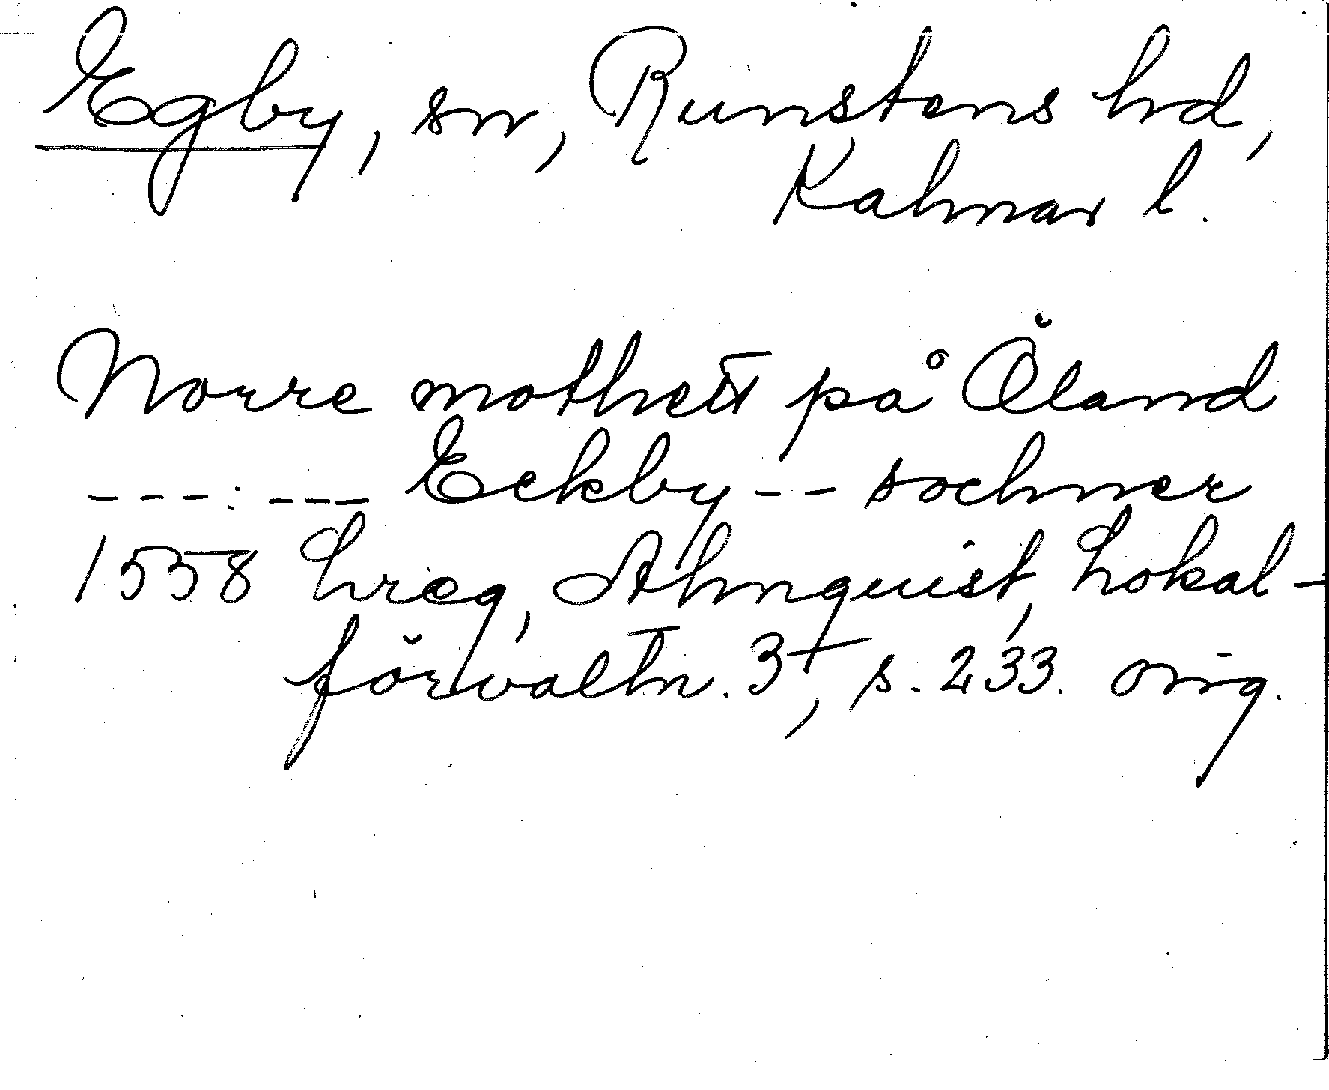 Egby, sn, Runstens hd,
Kalmar l.
Norre mothett på Öland
---:--- Eckby -- sochner
1558 Lreg, Almquist, Lokal-
förvaltn. 3†, s. 233. orig.